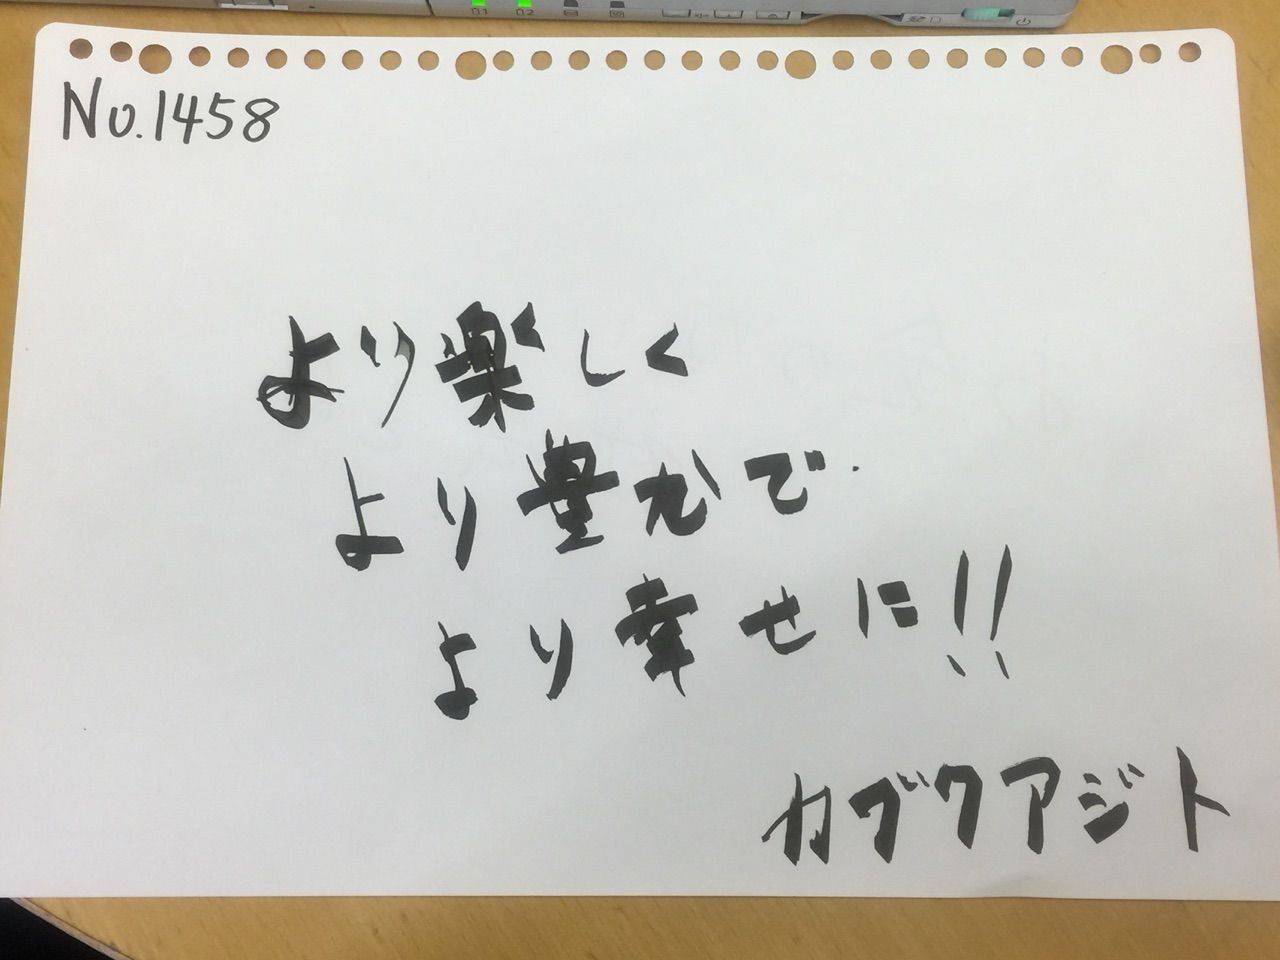 No.1458
より楽しく
より豊かで
より幸せに!!
カブクアジト